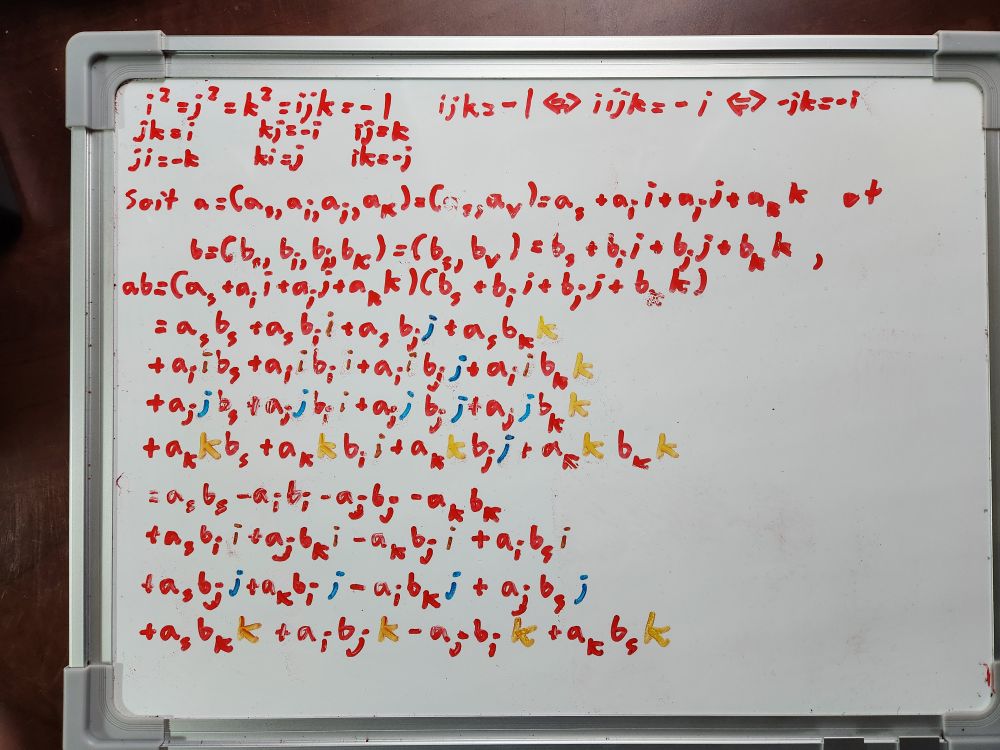 i² = j² = k² = ijk = -1 ijk = -1 ⇔ iijk = -i ⇔ -jk = -i
jk = i kj = -i ij = k
ji = -k ki = j ik = -j
Soit a = (a_s, a_i, a_j, a_k) = (a_s, a_v) = a_s + a_i i + a_j j + a_k k et
b = (b_s, b_i, b_j, b_k) = (b_s, b_v) = b_s + b_i i + b_j j + b_k k ,
ab = (a_s + a_i i + a_j j + a_k k)(b_s + b_i i + b_j j + b_k k)
= a_s b_s + a_s b_i i + a_s b_j j + a_s b_k k
+ a_i i b_s + a_i i b_i i + a_i i b_j j + a_i i b_k k
+ a_j j b_s + a_j j b_i i + a_j j b_j j + a_j j b_k k
+ a_k k b_s + a_k k b_i i + a_k k b_j j + a_k k b_k k
= a_s b_s - a_i b_i - a_j b_j - a_k b_k
+ a_s b_i i + a_j b_k i - a_k b_j i + a_i b_s i
+ a_s b_j j + a_k b_i j - a_i b_k j + a_j b_s j
+ a_s b_k k + a_i b_j k - a_j b_i k + a_k b_s k